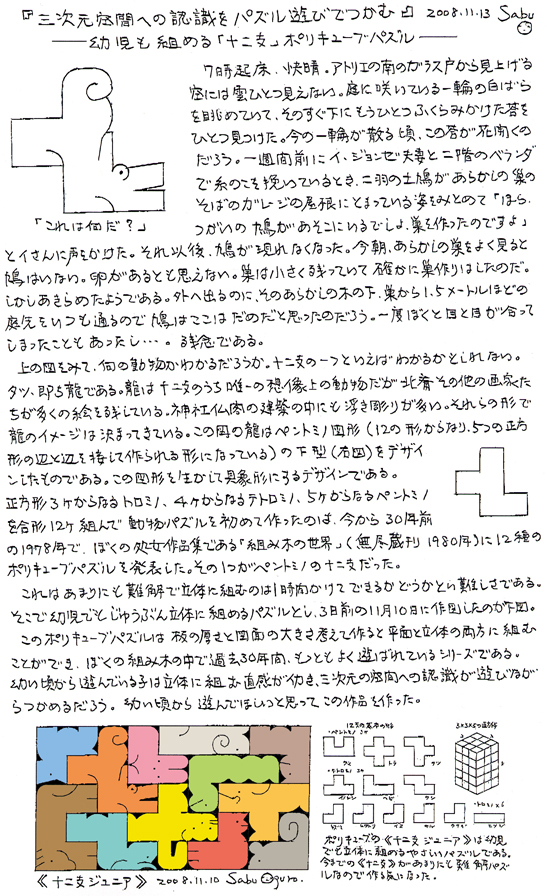 『三次元空間への認識をパズル遊びでつかむ』 2008.11.13 Sabu
―― 幼児も組める「十二支」ポリキューブパズル ――
7時起床、快晴。アトリエの南のガラス戸から見上げる
空には雲ひとつ見えない。庭に咲いている一輪の白ばら
を眺めていて、そのすぐ下にもうひとつふくらみかけた莟を
ひとつ見つけた。今の一輪が散る頃、この莟が花開くの
だろう。一週間前にイ・ジョンゼ夫妻と二階のベランダ
で糸のこを挽いているとき、二羽の土鳩があらかしの巣の
そばのガレージの屋根にとまっている姿をみとめて「ほら、
つがいの鳩があそこにいるでしょ、巣を作ったのですよ」
「これは何だ?」
とイさんに声をかけた。それ以後、鳩が現れなくなった。今朝、あらかしの巣をよく見ると
鳩はいない。卵があるとも思えない。巣は小さく残っていて確かに巣作りはしたのだ。
しかしあきらめたようである。外へ出るのに、そのあらかしの木の下、巣から1.5メートルほどの
庭先をいつも通るので鳩はここはだめだと思ったのだろう。一度ぼくと目と目が合って
しまったこともあったし…。残念である。
上の図をみて、何の動物かわかるだろうか。十二支の一つといえばわかるかもしれない。
タツ、即ち龍である。龍は十二支のうち唯一の想像上の動物だが北斎その他の画家た
ちが多くの絵を残している。神社仏閣の建築の中にも浮き彫りが多い。それらの形で
龍のイメージは決まってきている。この図の龍はペントミノ図形(12の形からなり、5つの正方
形の辺と辺を接して作られる形になっている)の下型(右図)をデザイ
ンしたものである。この図形を生かして具象形にするデザインである。
正方形3ケからなるトロミノ、4ケからなるテトロミノ、5ケからなるペントミノ
を合形12ケ組んで動物パズルを初めて作ったのは、今から30年前
の1978年で、ぼくの処女作品集である「組み木の世界」(無尽蔵刊 1980年)に12種の
ポリキューブパズルを発表した。その1つがペントミノの十二支だった。
これはあまりにも難解で立体に組むのは1時間かけてできるかどうかという難しさである。
そこで幼児でもじゅうぶん立体に組めるパズルとし、3日前の11月10日に作図したのが下図。
このポリキューブパズルは板の厚さと図面の大きさ考えて作ると平面と立体の両方に組む
ことができ、ぼくの組み木の中で過去30年間、もっともよく遊ばれているシリーズである。
幼い頃から遊んでいる子は立体に組む直感が働き、三次元の空間への認識が遊びなが
らつかめるだろう。幼い頃から遊んでほしいと思ってこの作品を作った。
12支の基本の形
・ペントミノ 3ケ
トラ
タツ
3×3×5の直方体
・テトロミノ 3ケ
ヘビ
・トロミノ×6
ポリキューブの《十二支ジュニア》は幼児
でも立体に組めるやさしいパズルである。
今までの《十二支》があまりにも難解パズ
ルなので作る気になった。
《十二支ジュニア》 2008.11.10 Sabu Oguro.